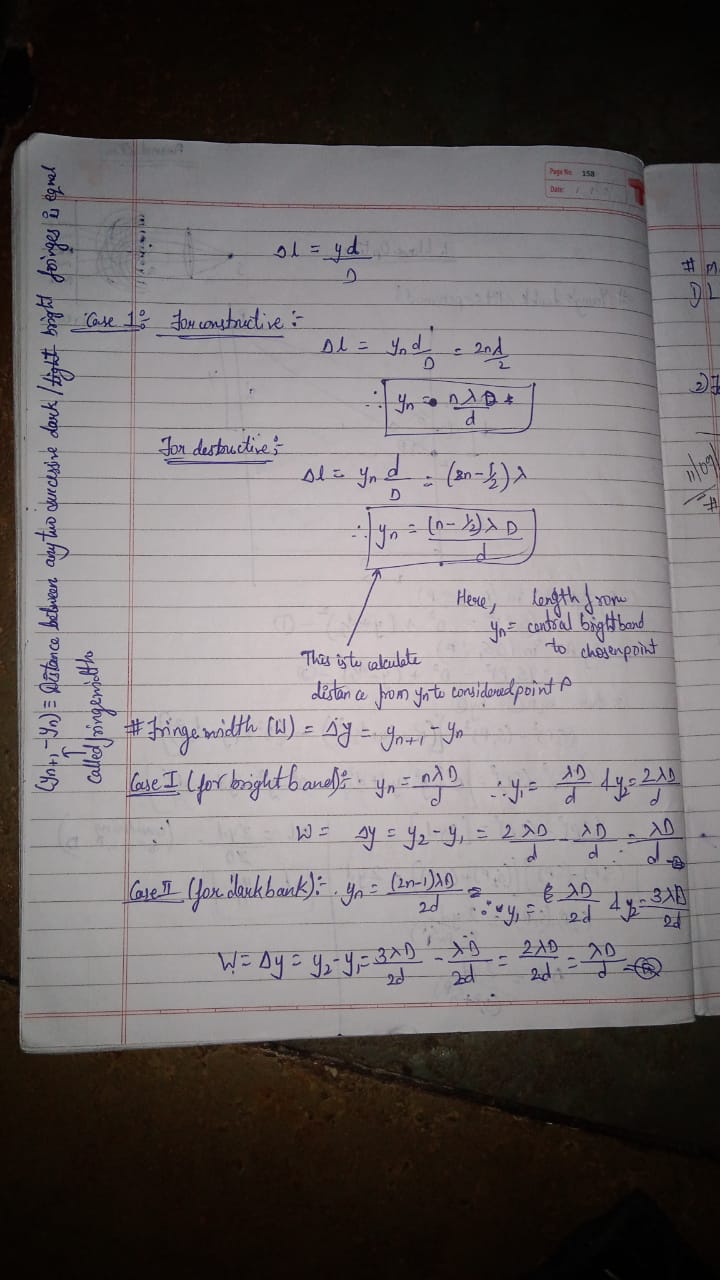 Page No. 158
Date: / /
Δl = yd/D
Case 1:- For constructive :-
Δl = yₙd/D = 2nλ/2
∴ yₙ = nλD/d
For destructive :-
Δl = yₙ d/D = (2n-1/2)λ
∴ yₙ = (n-1/2)λD/d
Here, yₙ = length from
central bright band
to chosen point
This is to calculate
distance from yₙ to considered point P
# Fringe width (W) = Δy = yₙ₊₁ - yₙ
Case I (for bright band):- yₙ = nλD/d ∴ y₁ = λD/d & y₂ = 2λD/d
∴ W = Δy = y₂ - y₁ = 2λD/d - λD/d = λD/d
Case II (for dark bank):- yₙ = (2n-1)λD/2d ∴ y₁ = λD/2d & y₂ = 3λD/2d
W = Δy = y₂ - y₁ = 3λD/2d - λD/2d = 2λD/2d = λD/d
(yₙ₊₁ - yₙ) ≡ Distance between any two successive dark / bright fringes is equal
called fringe width
#
1)
2)
#